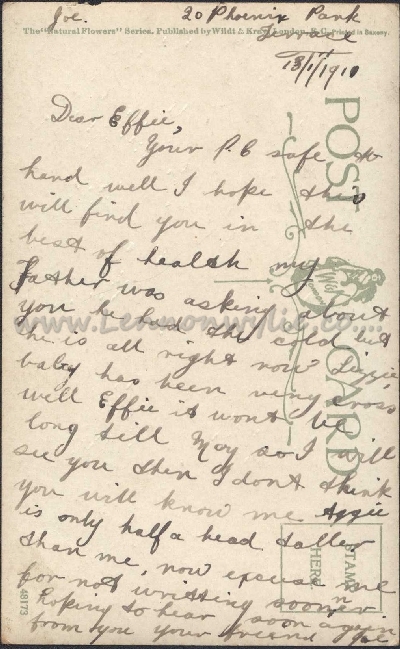 Joe. 20 Phoenix Park
The "Natural Flowers" Series. Published by Wildt & Kray, London, E.C. Printed in Saxony.
Terrace
13/1/1910
Dear Effie,
Your P.C safe to
hand well I hope this
will find you in the
best of health my
Father was asking about
you he had the cold but
he is all right now Lizzie
baby has been very cross
well Effie it wont be
long till May so I will
see you then I dont think
you will know me Aggie
is only half a head taller
than me, now excuse me
for not writting sooner
hoping to hear soon again
from you your friend Joe
POST CARD
STAMP
HERE
48173
www.Lennonwylie.co....